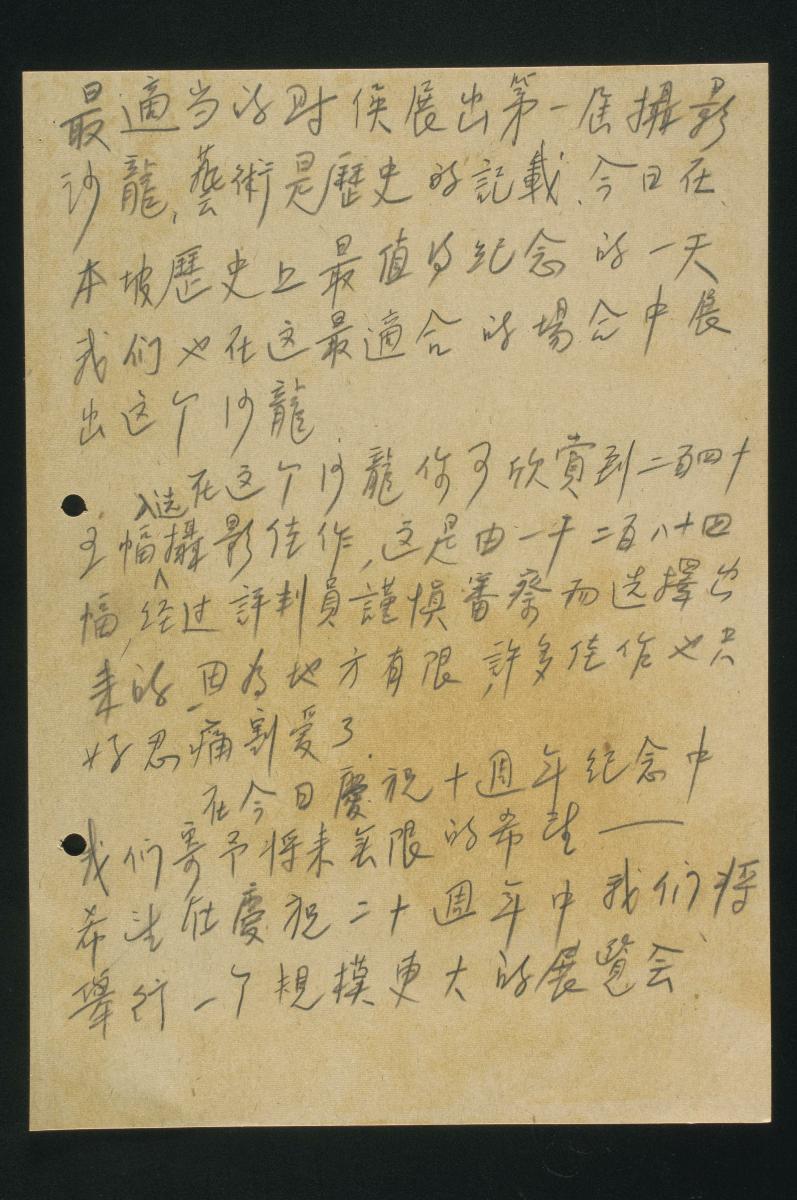 最適当的时候展出第一届攝影
沙龍,藝術是歷史的記載、今日在
本坡歷史上最值得纪念的一天
我们也在这最適合的場合中展
出这个沙龍.
在这个沙龍你可欣賞到二百四十
入选
五幅攝影佳作,这是由一千二百八十四
幅,经过評判員謹慎審察而选擇出
来的,因為地方有限,許多佳作也只
好忍痛割爱了.
在今日慶祝十週年纪念中
我们寄予将来無限的希望——
希望在慶祝二十週年中我们将
舉行一个規模更大的展覽会.